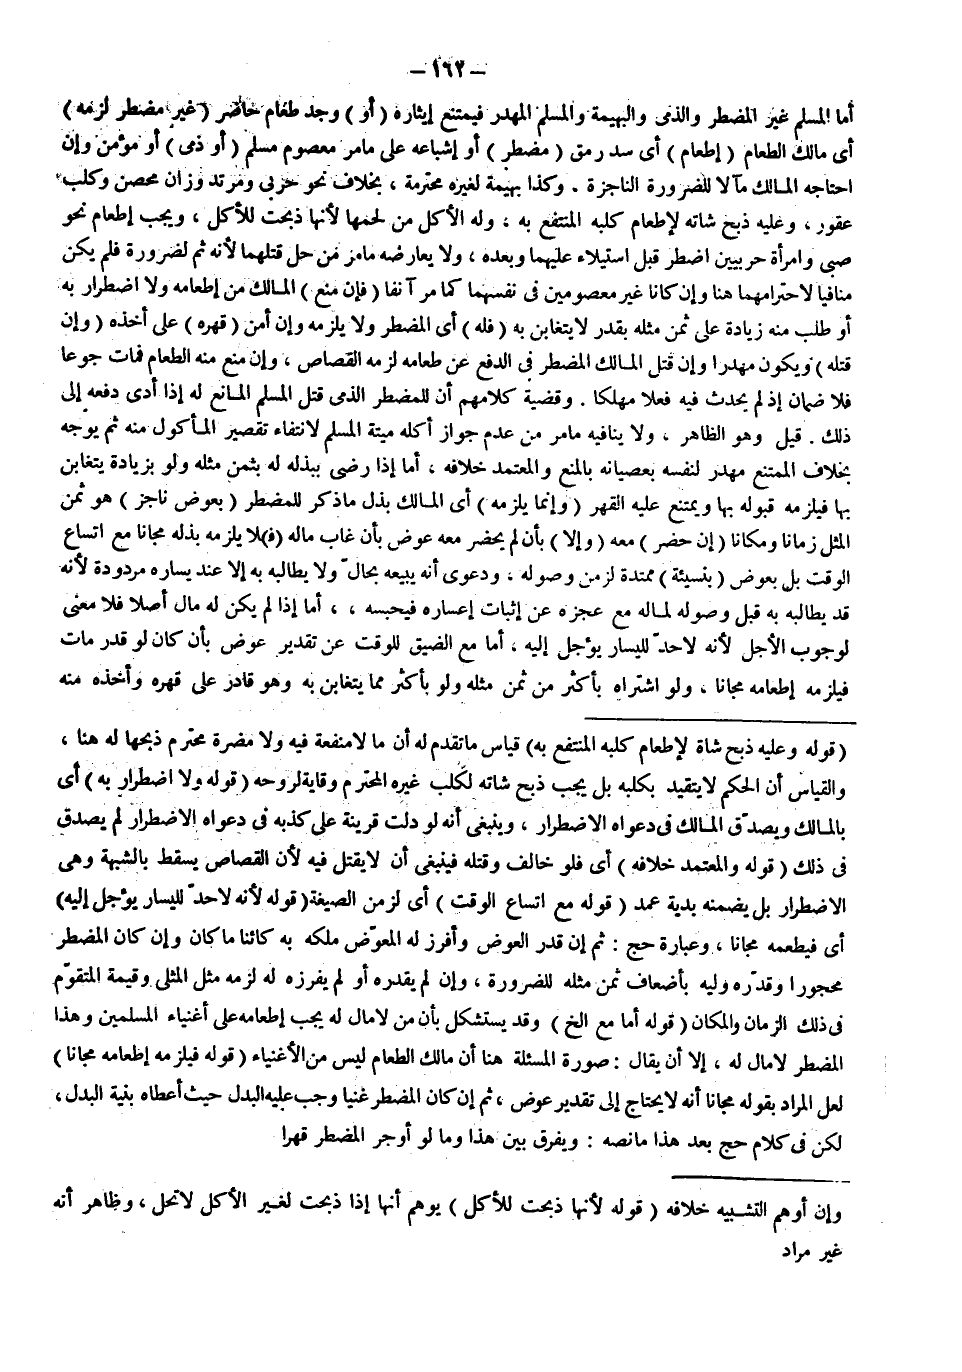 – ١٦٢ –
أما المسلم غير المضطر والذمى والبهيمة والمسلم المهدر فيمتنع إيثاره ( أو ) وجد طعام حاضر ( غير مضطر لزمه )
أى مالك الطعام ( إطعام ) أى سد رمق ( مضطر ) أو إشباعه على مامر معصوم مسلم ( أو ذمى ) أو مؤمن وإن
احتاجه المالك مآلا للضرورة الناجزة . وكذا بهيمة لغيره محترمة ، بخلاف نحو حربى ومرتد وزان محصن وكلب
عقور ، وعليه ذبح شاته لإطعام كلبه المنتفع به ، وله الأكل من لحمها لأنها ذبحت للأكل ، ويجب إطعام نحو
صبى وامرأة حربيين اضطر قبل استيلاء عليهما وبعده ، ولا يعارضه مامر من حل قتلهما لأنه ثم لضرورة فلم يكن
منافيا لاحترامهما هنا وإن كانا غير معصومين فى نفسهما كما مر آنفا ( فإن منع ) المالك من إطعامه ولا اضطرار به
أو طلب منه زيادة على ثمن مثله بقدر لايتغابن به ( فله ) أى المضطر ولا يلزمه وإن أمن ( قهره ) على أخذه ( وإن
قتله ) ويكون مهدرا وإن قتل المالك المضطر فى الدفع عن طعامه لزمه القصاص ، وإن منع منه الطعام فمات جوعا
فلا ضمان إذ لم يحدث فيه فعلا مهلكا . وقضية كلامهم أن للمضطر الذمى قتل المسلم المانع له إذا أدى دفعه إلى
ذلك . قيل وهو الظاهر ، ولا ينافيه مامر من عدم جواز أكله ميتة المسلم لانتفاء تقصير المأكول منه ثم بوجه
بخلاف الممتنع مهدر لنفسه بعصيانه بالمنع والمعتمد خلافه ، أما إذا رضى ببذله له بثمن مثله ولو بزيادة يتغابن
بها فيلزمه قبوله بها ويمتنع عليه القهر ( وإنما يلزمه ) أى المالك بذل ماذكر للمضطر ( بعوض ناجز ) هو ثمن
المثل زمانا ومكانا ( إن حضر ) معه ( وإلا ) بأن لم يحضر معه عوض بأن غاب ماله ( ف)لا يلزمه بذله مجانا مع اتساع
الوقت بل بعوض ( بنسيئة ) ممتدة لزمن وصوله ، ودعوى أنه يبيعه بحالّ ولا يطالبه به إلا عند يساره مردودة لأنه
قد يطالبه به قبل وصوله لماله مع عجزه عن إثبات إعساره فيحبسه ، ، أما إذا لم يكن له مال أصلا فلا معنى
لوجوب الأجل لأنه لاحدّ لليسار يؤجل إليه ، أما مع الضيق للوقت عن تقدير عوض بأن كان لو قدر مات
فيلزمه إطعامه مجانا ، ولو اشتراه بأكثر من ثمن مثله ولو بأكثر مما يتغابن به وهو قادر على قهره وأخذه منه
( قوله وعليه ذبح شاة لإطعام كلبه المنتفع به) قياس ماتقدم له أن ما لامنفعة فيه ولا مضرة محترم ذبحها له هنا ،
والقياس أن الحكم لايتقيد بكلبه بل يجب ذبح شاته لكلب غيره المحترم وقاية لروحه ( قوله ولا اضطرار به ) أى
بالمالك ويصدّق المالك فى دعواه الاضطرار ، وينبغى أنه لو دلت قرينة على كذبه فى دعواه الاضطرار لم يصدق
فى ذلك ( قوله والمعتمد خلافه ) أى فلو خالف وقتله فينبغى أن لايقتل فيه لأن القصاص يسقط بالشبهة وهى
الاضطرار بل يضمنه بدية عمد ( قوله مع اتساع الوقت ) أى لزمن الصيغة( قوله لأنه لاحدّ لليسار يؤجل إليه)
أى فيطعمه مجانا ، وعبارة حج : ثم إن قدر العوض وأفرز له المعوّض ملكه به كائنا ما كان وإن كان المضطر
محجورا وقدّره وليه بأضعاف ثمن مثله للضرورة ، وإن لم يقدره أو لم يفرزه له لزمه مثل المثلى وقيمة المتقوّم
فى ذلك الزمان والمكان ( قوله أما مع الخ ) وقد يستشكل بأن من لامال له يجب إطعامه على أغنياء المسلمين وهذا
المضطر لامال له ، إلا أن يقال : صورة المسئلة هنا أن مالك الطعام ليس من الأغنياء ( قوله فيلزمه إطعامه مجانا )
لعل المراد بقوله مجانا أنه لايحتاج إلى تقدير عوض ، ثم إن كان المضطر غنيا وجب عليه البدل حيث أعطاه بنية البدل ،
لكن فى كلام حج بعد هذا مانصه : ويفرق بين هذا وما لو أوجر المضطر قهرا
وإن أوهم التشبيه خلافه ( قوله لأنها ذبحت للأكل ) يوهم أنها إذا ذبحت لغير الأكل لاتحل ، وظاهر أنه
غير مراد